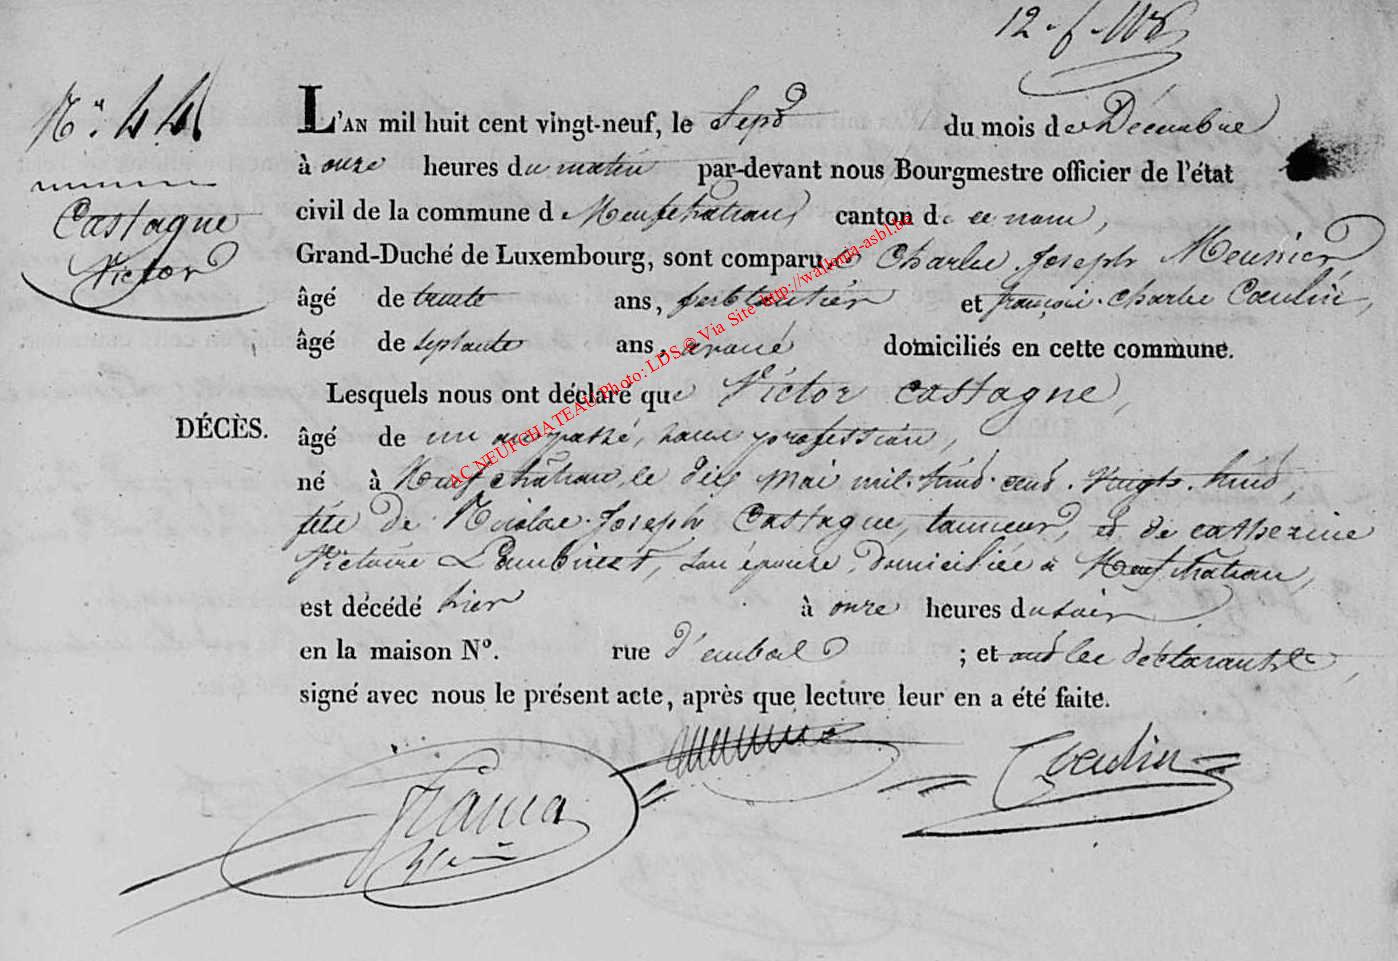 N°. 44
Castagne
Victor
L'AN mil huit cent vingt-neuf, le Sept du mois de Décembre
à onze heures du matin par-devant nous Bourgmestre officier de l'état
civil de la commune de Neufchateau, canton de ce nom,
Grand-Duché de Luxembourg, sont comparus Charles Joseph Meunier
âgé de trente ans, ferblantier et françois Charles Coeulin,
âgé de septante ans, avoué domiciliés en cette commune.
Lesquels nous ont déclaré que Victor Castagne,
DÉCÈS.
âgé de un an passé, sans profession,
né à Neufchâteau, le dix Mai mil huit cent vingt huit,
fils de Nicolas Joseph Castagne, tanneur, et de catherine
Victoire Lambinet, son épouse, domiciliée à Neufchateau,
est décédé hier à onze heures du soir
en la maison N°. rue d'embas ; et ont les déclarants,
signé avec nous le présent acte, après que lecture leur en a été faite.
Coeulin
AC NEUFCHATEAU Photo: LDS © Via Site http://wallonia-asbl.be